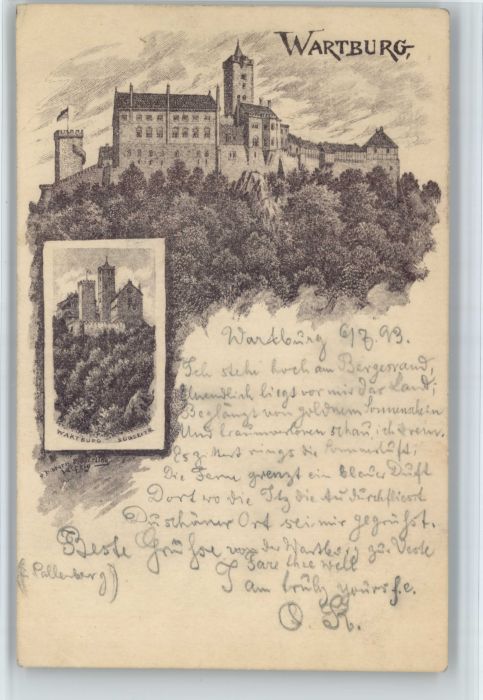 WARTBURG,
WARTBURG SÜDSEITE
Wartburg 6/7 93.
Ich stehe hoch am Bergesrand,
Unendlich liegt vor mir das Land;
Beglänzt von goldnem Sonnenschein
Und traumverloren schau ich drein.
Es zittert rings die Sommerluft;
Die Ferne grenzt ein blauer Duft
Dort wo die Itz die Au durchfliesst
Du schöner Ort sei mir gegrüsst.
Beste Grüsse von der Wartburg zur Veste
Fare thee well
I am truly yours f.e.
O. R.